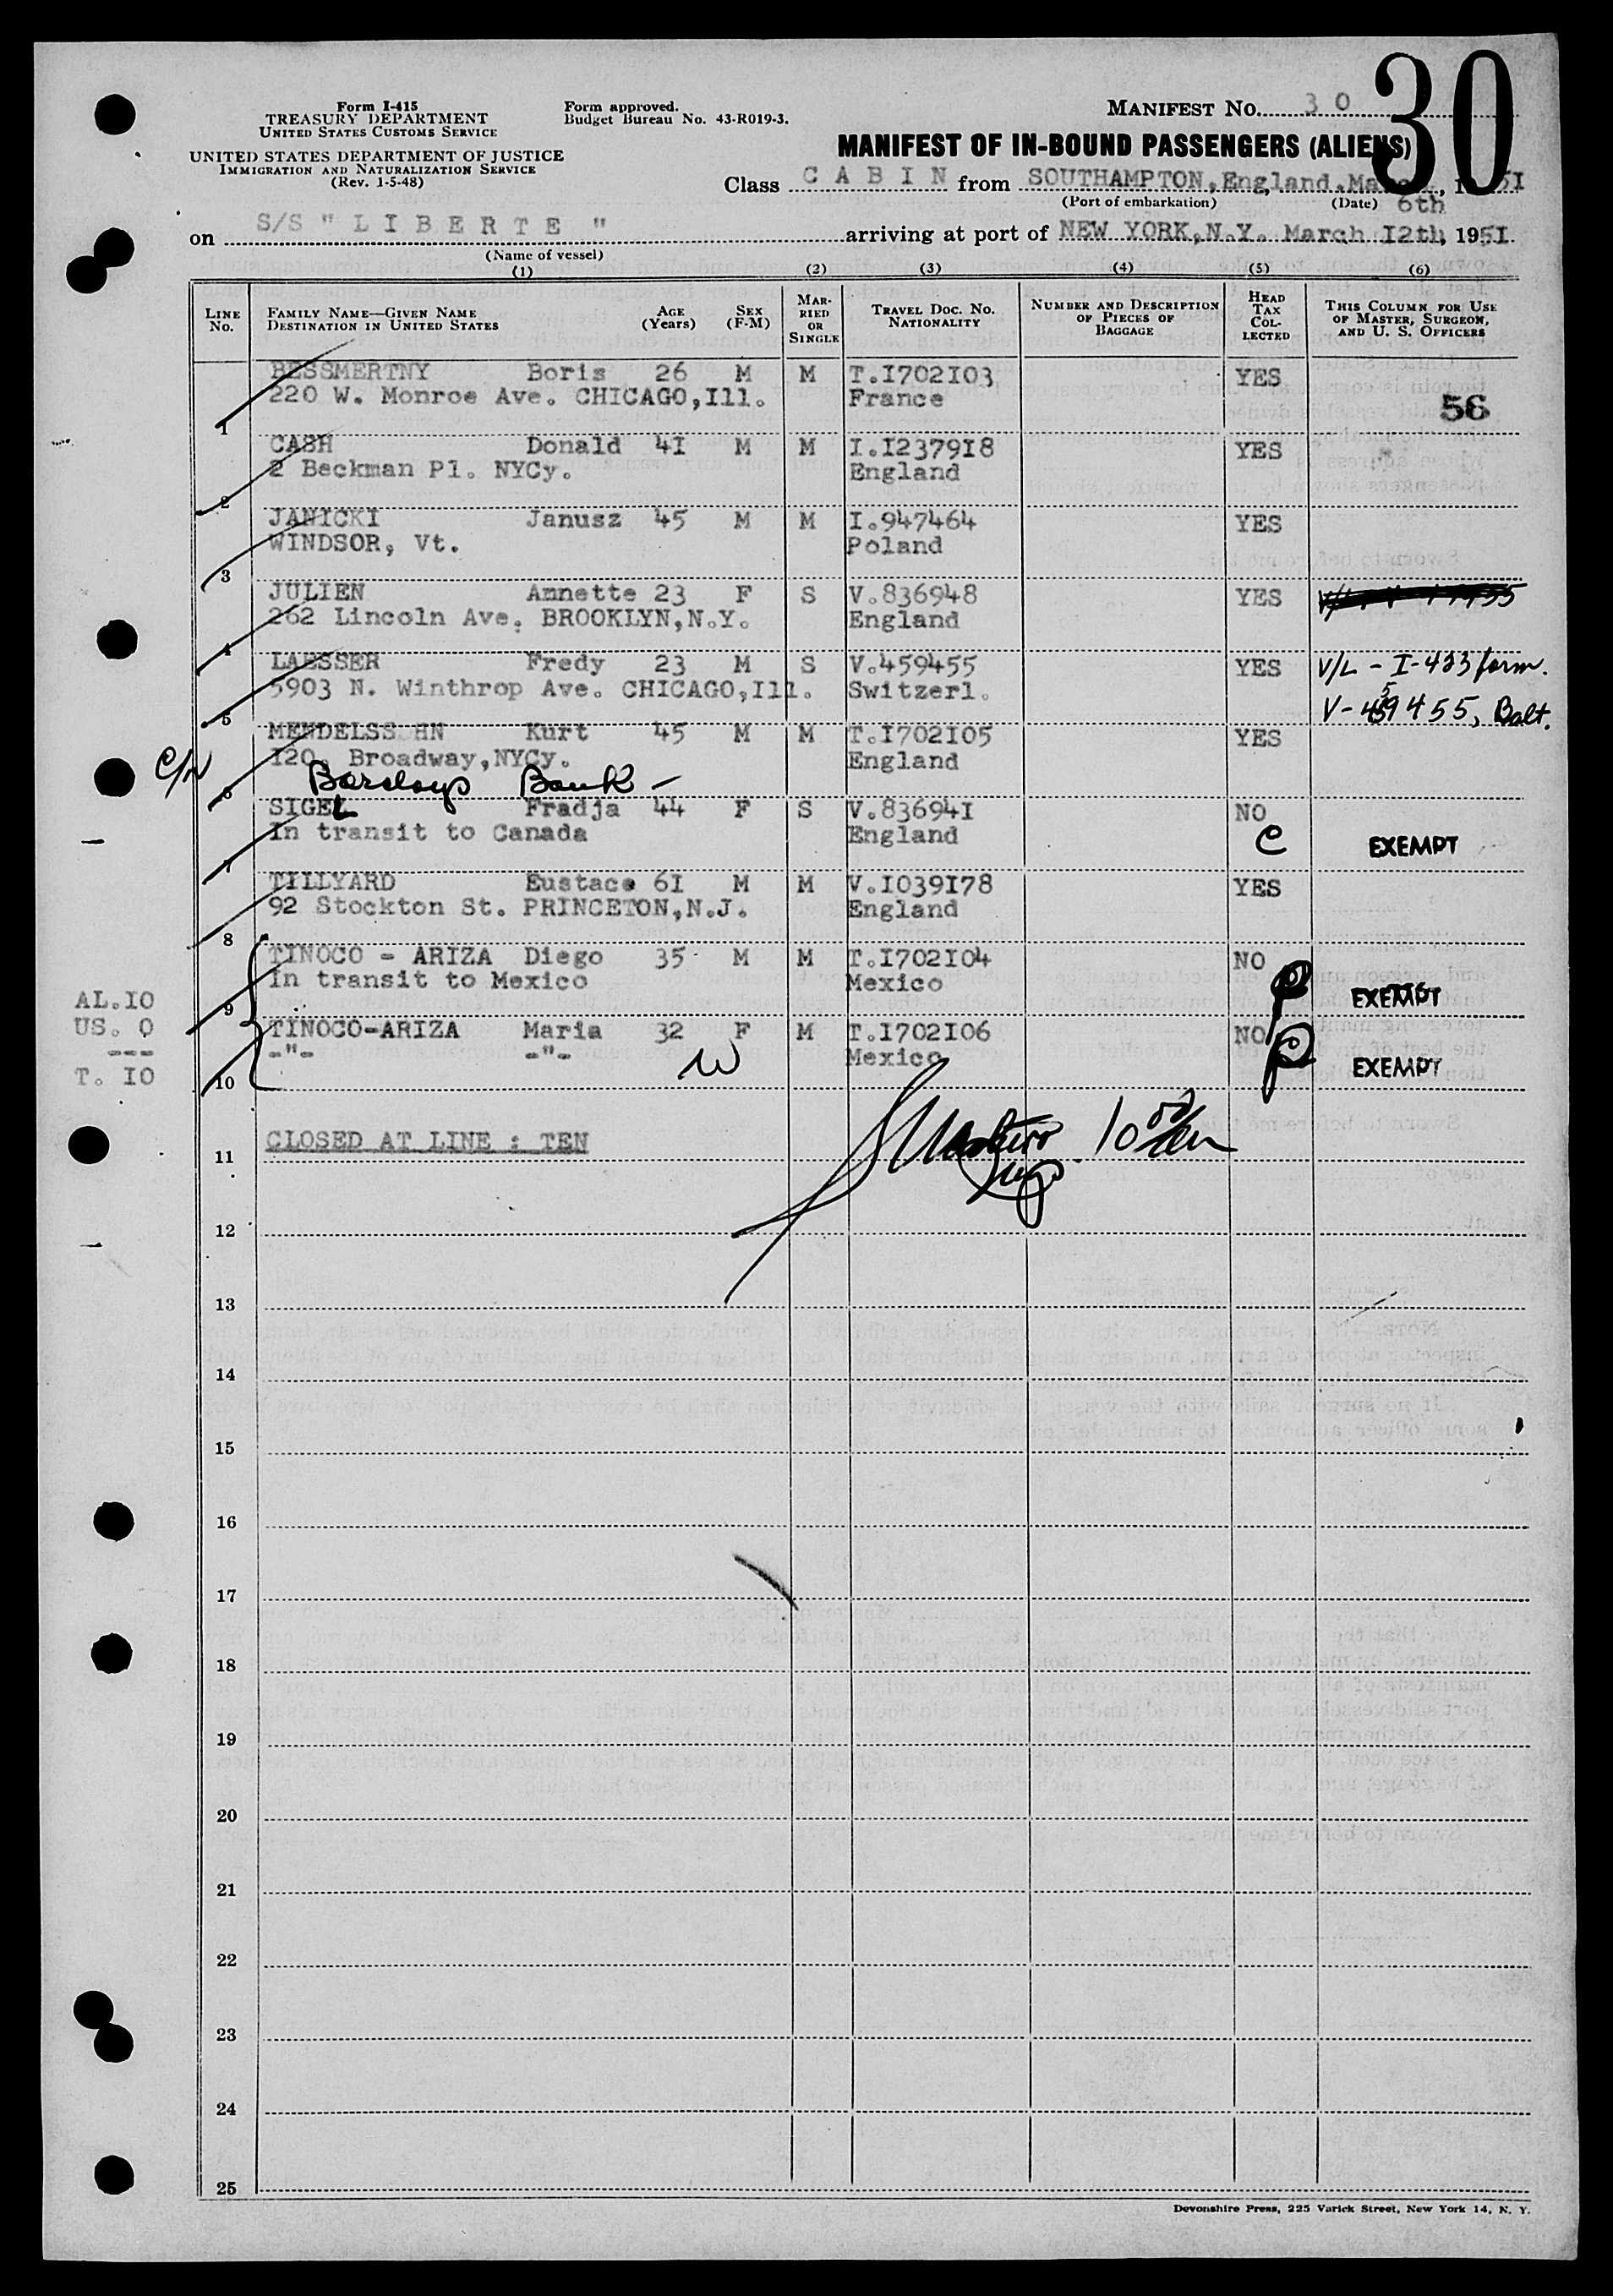 30
Form I-415
TREASURY DEPARTMENT
UNITED STATES CUSTOMS SERVICE
UNITED STATES DEPARTMENT OF JUSTICE
IMMIGRATION AND NATURALIZATION SERVICE
(Rev. 1-5-48)
Form approved.
Budget Bureau No. 43-R019-3.
MANIFEST NO. 30
MANIFEST OF IN-BOUND PASSENGERS (ALIENS)
Class C A B I N from SOUTHAMPTON,England, 51
(Port of embarkation) (Date) 6th
on S/S " L I B E R T E " arriving at port of NEW YORK,N.Y. March I2th, 1951.
(Name of vessel)
(1) (2) (3) (4) (5) (6)
LINE No. FAMILY NAME—GIVEN NAME DESTINATION IN UNITED STATES AGE (Years) SEX (F-M) MARRIED OR SINGLE TRAVEL DOC. NO. NATIONALITY NUMBER AND DESCRIPTION OF PIECES OF BAGGAGE HEAD TAX COLLECTED THIS COLUMN FOR USE OF MASTER, SURGEON, AND U. S. OFFICERS
BESSMERTNY Boris 26 M M T.I702I03 YES
220 W. Monroe Ave. CHICAGO,Ill. France 56
1
CASH Donald 4I M M I.I2379I8 YES
2 Beckman Pl. NYCy. England
2
JANICKI Janusz 45 M M I.947464 YES
WINDSOR, Vt. Poland
3
JULIEN Annette 23 F S V.836948 YES
262 Lincoln Ave. BROOKLYN,N.Y. England
4
LAESSER Fredy 23 M S V.459455 YES V/L - I-433 form.
5903 N. Winthrop Ave. CHICAGO,Ill. Switzerl. V-459455, Balt.
5
MENDELSS HN Kurt 45 M M T.I702I05 YES
I20, Broadway,NYCy. England
C/N
6 Barclays Bank -
SIGEL Fradja 44 F S V.83694I NO
In transit to Canada England C EXEMPT
7
TILLYARD Eustace 6I M M V.I039I78 YES
92 Stockton St. PRINCETON,N.J. England
8
TINOCO - ARIZA Diego 35 M M T.I702I04 NO
In transit to Mexico Mexico P EXEMPT
9
TINOCO-ARIZA Maria 32 F M T.I702I06 NO
-"- -"- W Mexico P EXEMPT
10
AL.IO
US. 0
---
T. IO
CLOSED AT LINE : TEN
11
12
13
14
15
16
17
18
19
20
21
22
23
24
25
Devonshire Press, 225 Varick Street, New York 14, N. Y.